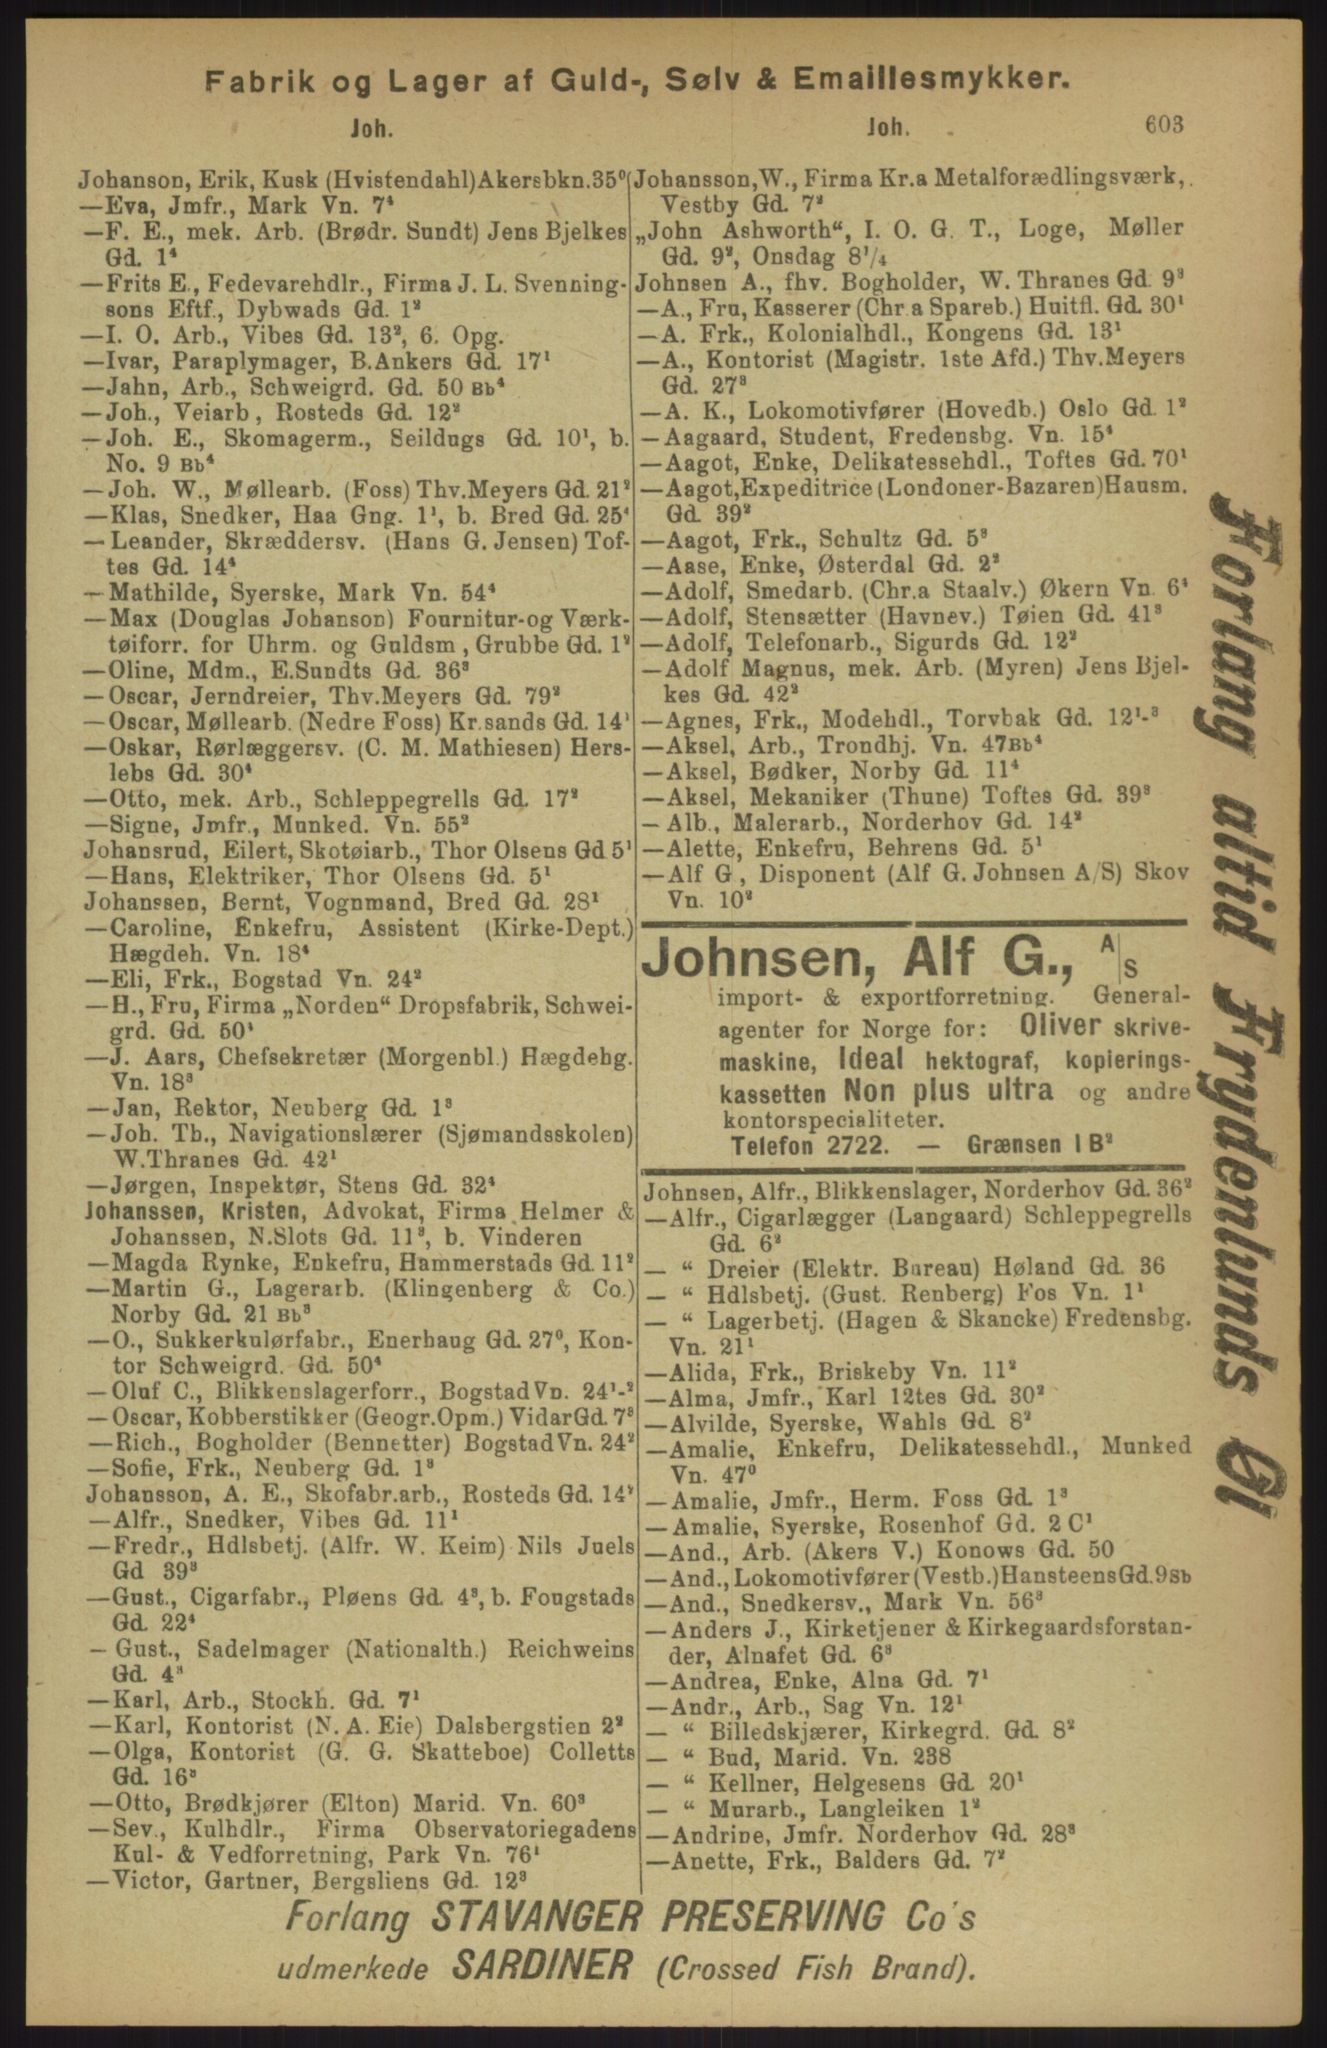 Fabrik og Lager af Guld-, Sølv & Emaillesmykker.
Joh.
Joh.
603
Johanson, Erik, Kusk (Hvistendahl) Akersbkn. 35⁰
—Eva, Jmfr., Mark Vn. 7⁴
—F. E., mek. Arb. (Brødr. Sundt) Jens Bjelkes
Gd. 1⁴
—Frits E., Fedevarehdlr., Firma J. L. Svenning-
sons Eftf., Dybwads Gd. 1²
—I. O. Arb., Vibes Gd. 13², 6. Opg.
—Ivar, Paraplymager, B. Ankers Gd. 17¹
—Jahn, Arb., Schweigrd. Gd. 50 Bb⁴
—Joh., Veiarb, Rosteds Gd. 12²
—Joh. E., Skomagerm., Seildugs Gd. 10¹, b.
No. 9 Bb⁴
—Joh. W., Møllearb. (Foss) Thv. Meyers Gd. 21²
—Klas, Snedker, Haa Gng. 1¹, b. Bred Gd. 25⁴
—Leander, Skræddersv. (Hans G. Jensen) Tof-
tes Gd. 14⁴
—Mathilde, Syerske, Mark Vn. 54⁴
—Max (Douglas Johanson) Fournitur-og Værk-
tøiforr. for Uhrm. og Guldsm, Grubbe Gd. 1²
—Oline, Mdm., E. Sundts Gd. 36³
—Oscar, Jerndreier, Thv. Meyers Gd. 79²
—Oscar, Møllearb. (Nedre Foss) Kr.sands Gd. 14¹
—Oskar, Rørlæggersv. (C. M. Mathiesen) Hers-
lebs Gd. 30⁴
—Otto, mek. Arb., Schleppegrells Gd. 17²
—Signe, Jmfr., Munked. Vn. 55²
Johansrud, Eilert, Skotøiarb., Thor Olsens Gd 5¹
—Hans, Elektriker, Thor Olsens Gd. 5¹
Johanssen, Bernt, Vognmand, Bred Gd. 28¹
—Caroline, Enkefru, Assistent (Kirke-Dept.)
Hægdeh. Vn. 18⁴
—Eli, Frk., Bogstad Vn. 24²
—H., Fru, Firma „Norden“ Dropsfabrik, Schwei-
grd. Gd. 50¹
—J. Aars, Chefsekretær (Morgenbl.) Hægdehg.
Vn. 18³
—Jan, Rektor, Neuberg Gd. 1³
—Joh. Th., Navigationslærer (Sjømandsskolen)
W. Thranes Gd. 42¹
—Jørgen, Inspektør, Stens Gd. 32⁴
Johanssen, Kristen, Advokat, Firma Helmer &
Johanssen, N. Slots Gd. 11³, b. Vinderen
—Magda Rynke, Enkefru, Hammerstads Gd. 11²
—Martin G., Lagerarb. (Klingenberg & Co.)
Norby Gd. 21 Bb³
—O., Sukkerkulørfabr., Enerhaug Gd. 27⁰, Kon-
tor Schweigrd. Gd. 50⁴
—Oluf C., Blikkenslagerforr., Bogstad Vn. 24¹-²
—Oscar, Kobberstikker (Geogr. Opm.) Vidar Gd. 7³
—Rich., Bogholder (Bennetter) Bogstad Vn. 24²
—Sofie, Frk., Neuberg Gd. 1³
Johansson, A. E., Skofabr.arb., Rosteds Gd. 14²
—Alfr., Snedker, Vibes Gd. 11¹
—Fredr., Hdlsbetj. (Alfr. W. Keim) Nils Juels
Gd 39³
—Gust., Cigarfabr., Pløens Gd. 4³, b. Fougstads
Gd. 22⁴
—Gust., Sadelmager (Nationalth.) Reichweins
Gd. 4³
—Karl, Arb., Stockh. Gd. 7¹
—Karl, Kontorist (N. A. Eie) Dalsbergstien 2²
—Olga, Kontorist (G. G. Skatteboe) Colletts
Gd. 16³
—Otto, Brødkjører (Elton) Marid. Vn. 60³
—Sev., Kulhdlr., Firma Observatoriegadens
Kul- & Vedforretning, Park Vn. 76¹
—Victor, Gartner, Bergsliens Gd. 12³
Johansson, W., Firma Kr.a Metalforædlingsværk,
Vestby Gd. 7²
„John Ashworth“, I. O. G. T., Loge, Møller
Gd. 9², Onsdag 8¹/₄
Johnsen A., fhv. Bogholder, W. Thranes Gd. 9³
—A., Fru, Kasserer (Chr.a Spareb.) Huitfl. Gd. 30¹
—A. Frk., Kolonialhdl., Kongens Gd. 13¹
—A., Kontorist (Magistr. 1ste Afd.) Thv. Meyers
Gd. 27³
—A. K., Lokomotivfører (Hovedb.) Oslo Gd. 1²
—Aagaard, Student, Fredensbg. Vn. 15⁴
—Aagot, Enke, Delikatessehdl., Toftes Gd. 70¹
—Aagot, Expeditrice (Londoner-Bazaren) Hausm.
Gd. 39²
—Aagot, Frk., Schultz Gd. 5³
—Aase, Enke, Østerdal Gd. 2²
—Adolf, Smedarb. (Chr.a Staalv.) Økern Vn. 6⁴
—Adolf, Stensætter (Havnev.) Tøien Gd. 41³
—Adolf, Telefonarb., Sigurds Gd. 12²
—Adolf Magnus, mek. Arb. (Myren) Jens Bjel-
kes Gd. 42²
—Agnes, Frk., Modehdl., Torvbak Gd. 12¹-³
—Aksel, Arb., Trondhj. Vn. 47 Bb⁴
—Aksel, Bødker, Norby Gd. 11⁴
—Aksel, Mekaniker (Thune) Toftes Gd. 39³
—Alb., Malerarb., Norderhov Gd. 14²
—Alette, Enkefru, Behrens Gd. 5¹
—Alf G, Disponent (Alf G. Johnsen A/S) Skov
Vn. 10²
Johnsen, Alf G., A/S
import- & exportforretning. General-
agenter for Norge for: Oliver skrive-
maskine, Ideal hektograf, kopierings-
kassetten Non plus ultra og andre
kontorspecialiteter.
Telefon 2722. — Grænsen 1 B²
Johnsen, Alfr., Blikkenslager, Norderhov Gd. 36²
—Alfr., Cigarlægger (Langaard) Schleppegrells
Gd. 6²
— “ Dreier (Elektr. Bureau) Høland Gd. 36
— “ Hdlsbetj. (Gust. Renberg) Fos Vn. 1¹
— “ Lagerbetj. (Hagen & Skancke) Fredensbg.
Vn. 21¹
—Alida, Frk., Briskeby Vn. 11²
—Alma, Jmfr., Karl 12tes Gd. 30²
—Alvilde, Syerske, Wahls Gd. 8²
—Amalie, Enkefru, Delikatessehdl., Munked
Vn. 47⁰
—Amalie, Jmfr., Herm. Foss Gd. 1³
—Amalie, Syerske, Rosenhof Gd. 2 C¹
—And., Arb. (Akers V.) Konows Gd. 50
—And., Lokomotivfører (Vestb.) Hansteens Gd. 9 Sb
—And., Snedkersv., Mark Vn. 56³
—Anders J., Kirketjener & Kirkegaardsforstan-
der, Alnafet Gd. 6³
—Andrea, Enke, Alna Gd. 7¹
—Andr., Arb., Sag Vn. 12¹
— “ Billedskjærer, Kirkegrd. Gd. 8²
— “ Bud, Marid. Vn. 238
— “ Kellner, Helgesens Gd. 20¹
— “ Murarb., Langleiken 1²
—Andrine, Jmfr. Norderhov Gd. 28³
—Anette, Frk., Balders Gd. 7²
Forlang altid Frydenlunds Øl
Forlang STAVANGER PRESERVING Co's
udmerkede SARDINER (Crossed Fish Brand).